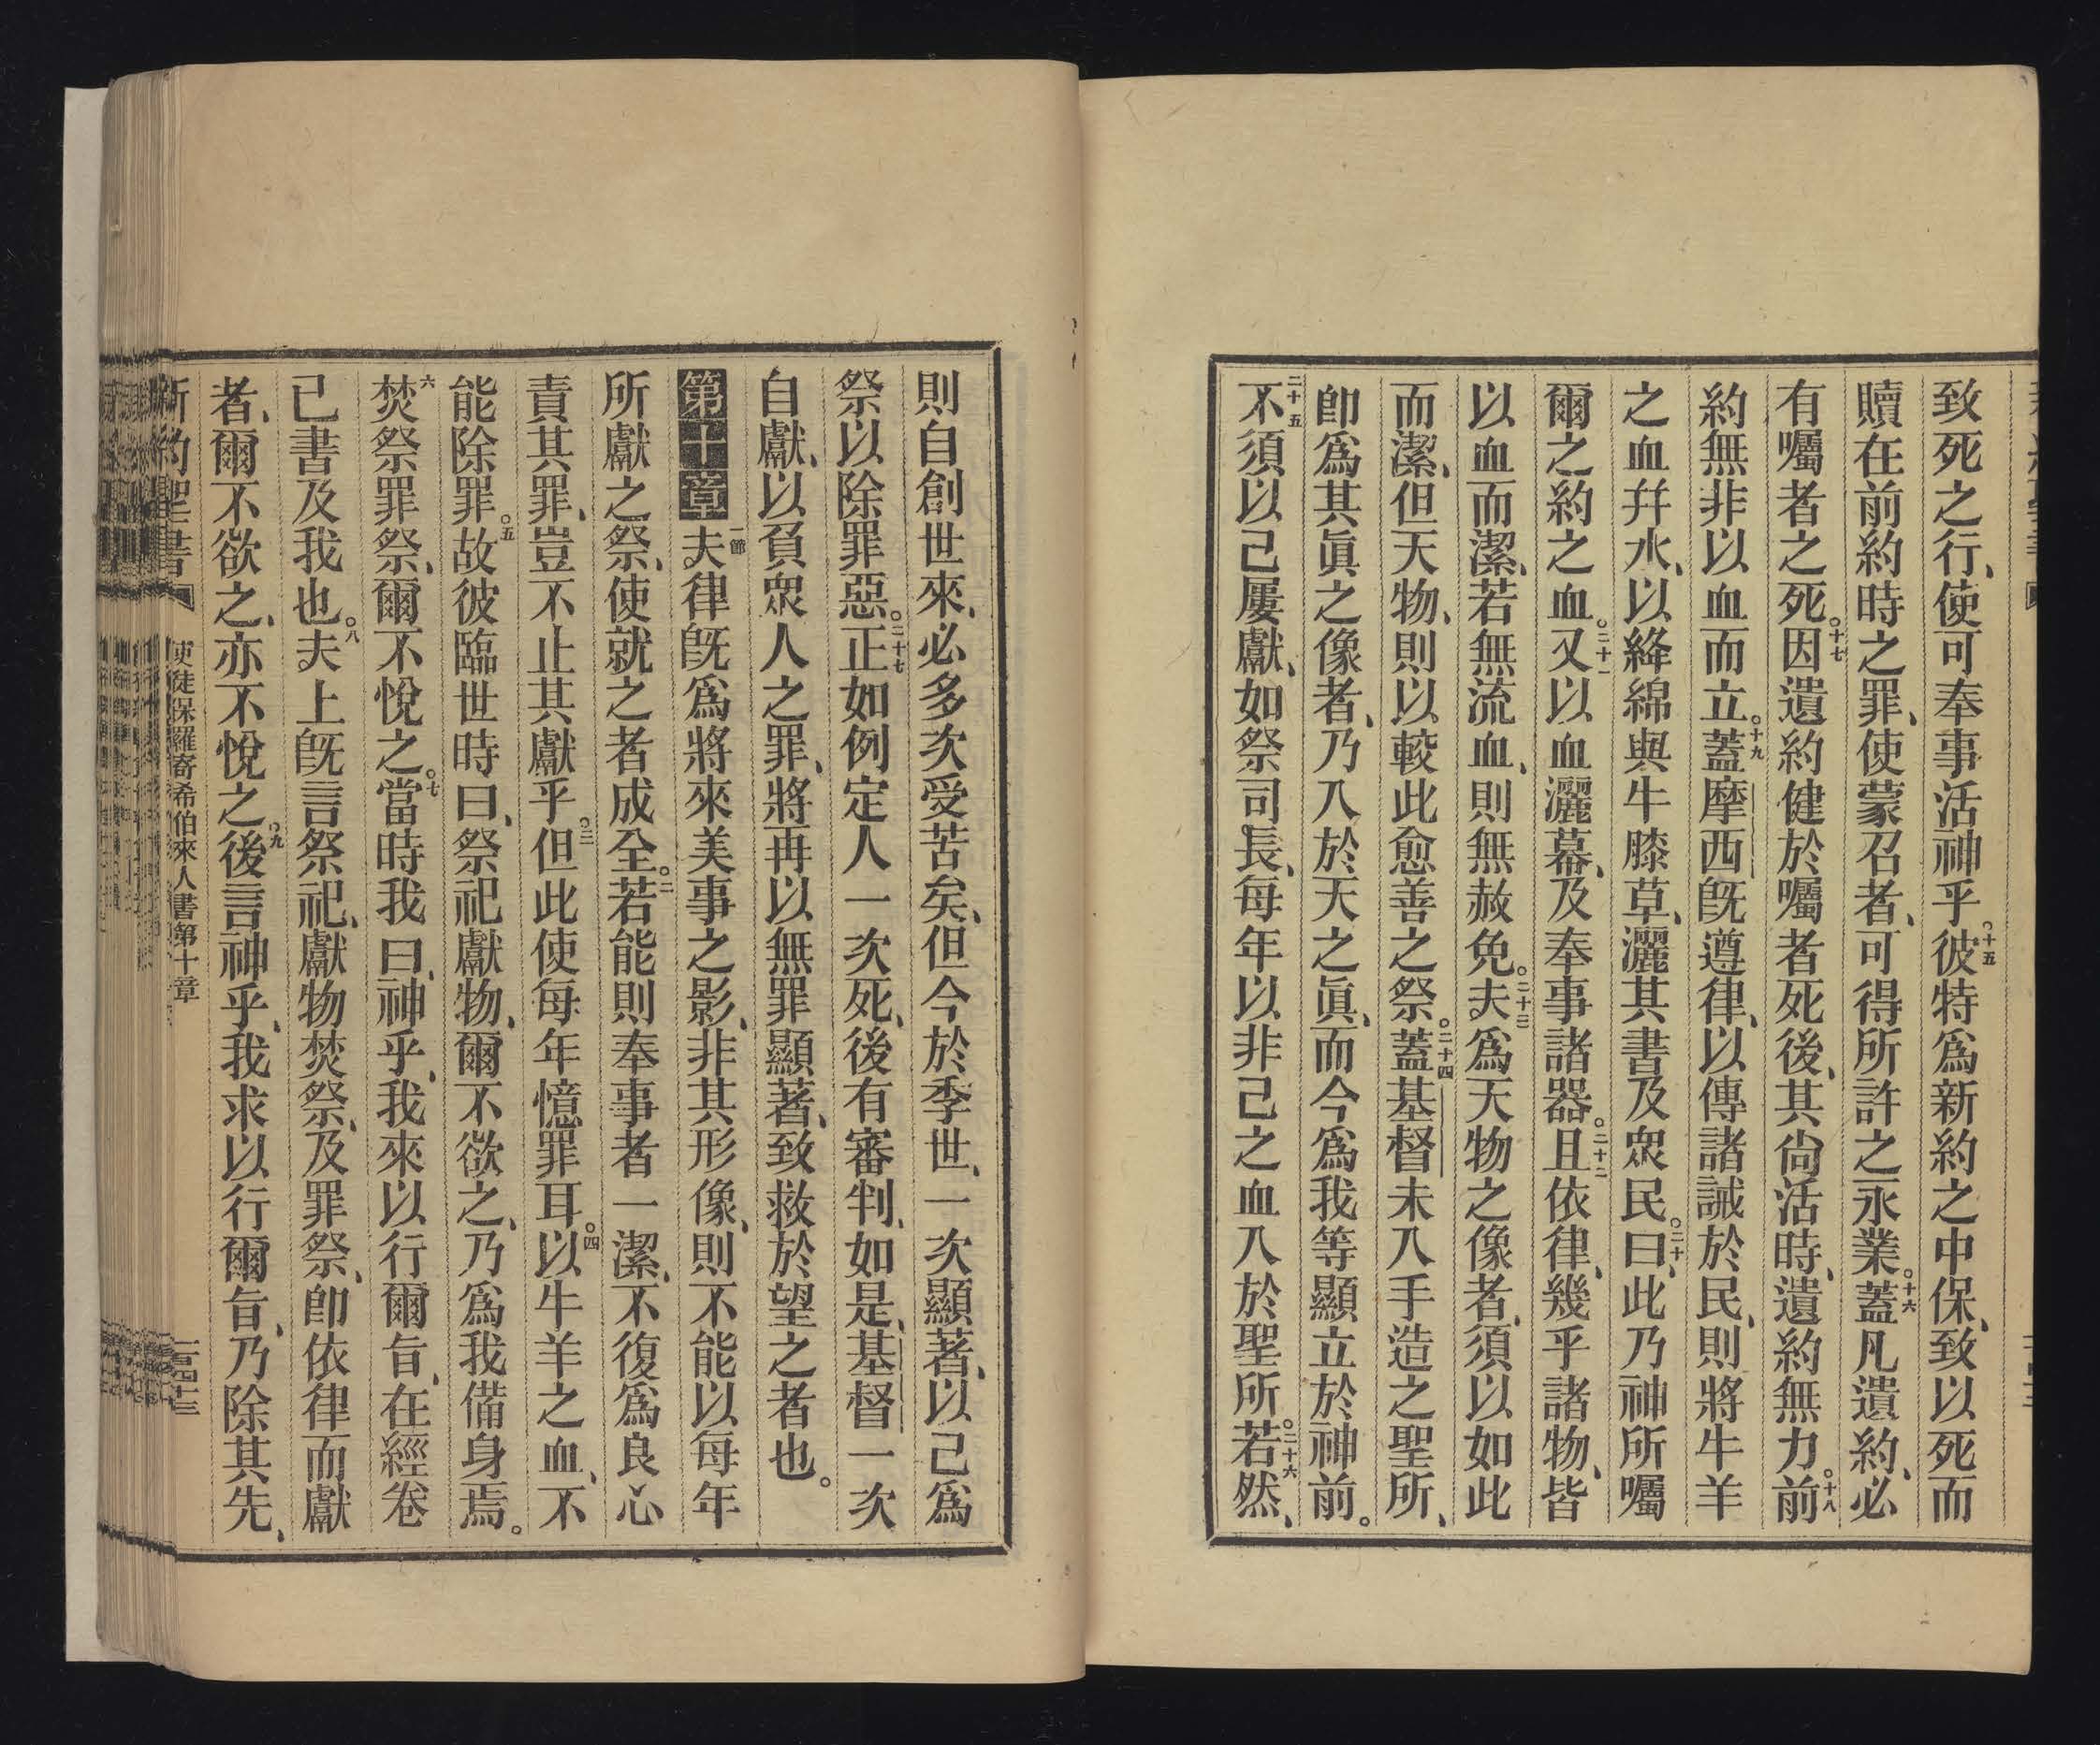 致死之行、使可奉事活神乎。十五彼特爲新約之中保、致以死而
贖在前約時之罪、使蒙召者、可得所許之永業。十六蓋凡遺約、必
有囑者之死。十七因遺約健於囑者死後、其尙活時、遺約無力。十八前
約無非以血而立。十九蓋摩西旣遵律、以傳諸誡於民、則將牛羊
之血幷水、以絳綿與牛膝草、灑其書及眾民。二十曰、此乃神所囑
爾之約之血。二十一又以血灑幕、及奉事諸器。二十二且依律、幾乎諸物、皆
以血而潔、若無流血、則無赦免。二十三夫爲天物之像者、須以如此
而潔、但天物、則以較此愈善之祭。二十四蓋基督未入手造之聖所、
卽爲其眞之像者、乃入於天之眞、而今爲我等顯立於神前。
二十五不須以己屢獻、如祭司長、每年以非己之血入於聖所。二十六若然、
則自創世來、必多次受苦矣、但今於季世、一次顯著、以己爲
祭以除罪惡。二十七正如例定人一次死、後有審判、如是、基督一次
自獻、以負眾人之罪、將再以無罪顯著、致救於望之者也。
第十章 一節夫律旣爲將來美事之影、非其形像、則不能以每年
所獻之祭、使就之者成全。二若能則奉事者一潔、不復爲良心
責其罪、豈不止其獻乎。三但此使每年憶罪耳。四以牛羊之血、不
能除罪。五故彼臨世時曰、祭祀獻物、爾不欲之、乃爲我備身焉。
六焚祭罪祭、爾不悅之。七當時我曰、神乎、我來以行爾旨、在經卷
已書及我也。八夫上旣言祭祀、獻物焚祭、及罪祭、卽依律而獻
者、爾不欲之、亦不悅之。九後言神乎、我求以行爾旨、乃除其先、
新約聖書 使徒保羅寄希伯來人書第十章